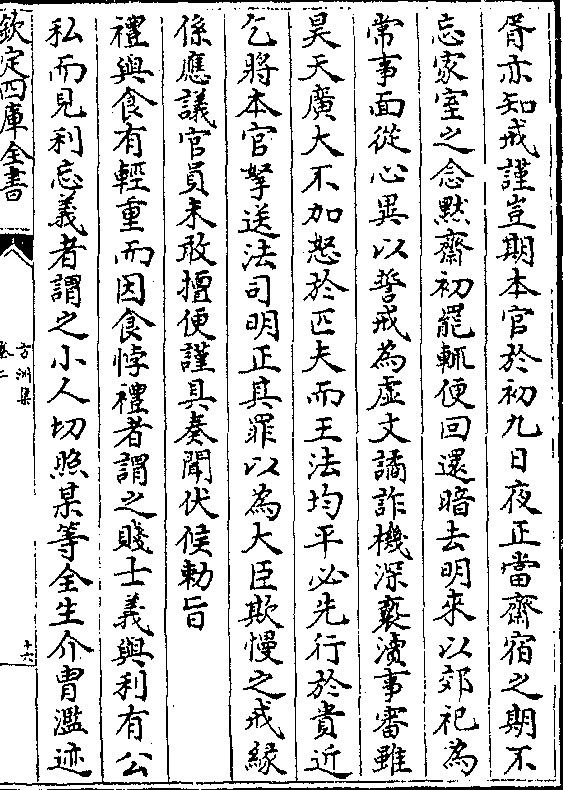 胥亦知戒謹豈期本官於初九日夜正當齋宿之期不
忘家室之念默齋初罷輒便回還暗去明來以郊祀為
常事面從心異以誓戒為虛文譎詐機深褻瀆事審雖
昊天廣大不加怒於匹夫而王法均平必先行於貴近
乞將本官拏送法司明正其罪以為大臣欺慢之戒緣
係應議官員未敢擅便謹具奏聞伏候勅旨
禮與食有輕重而因食悖禮者謂之賤士義與利有公
私而見利忘義者謂之小人切照某等全生介胄濫迹
欽定四庫全書
方洲集
卷二
十六